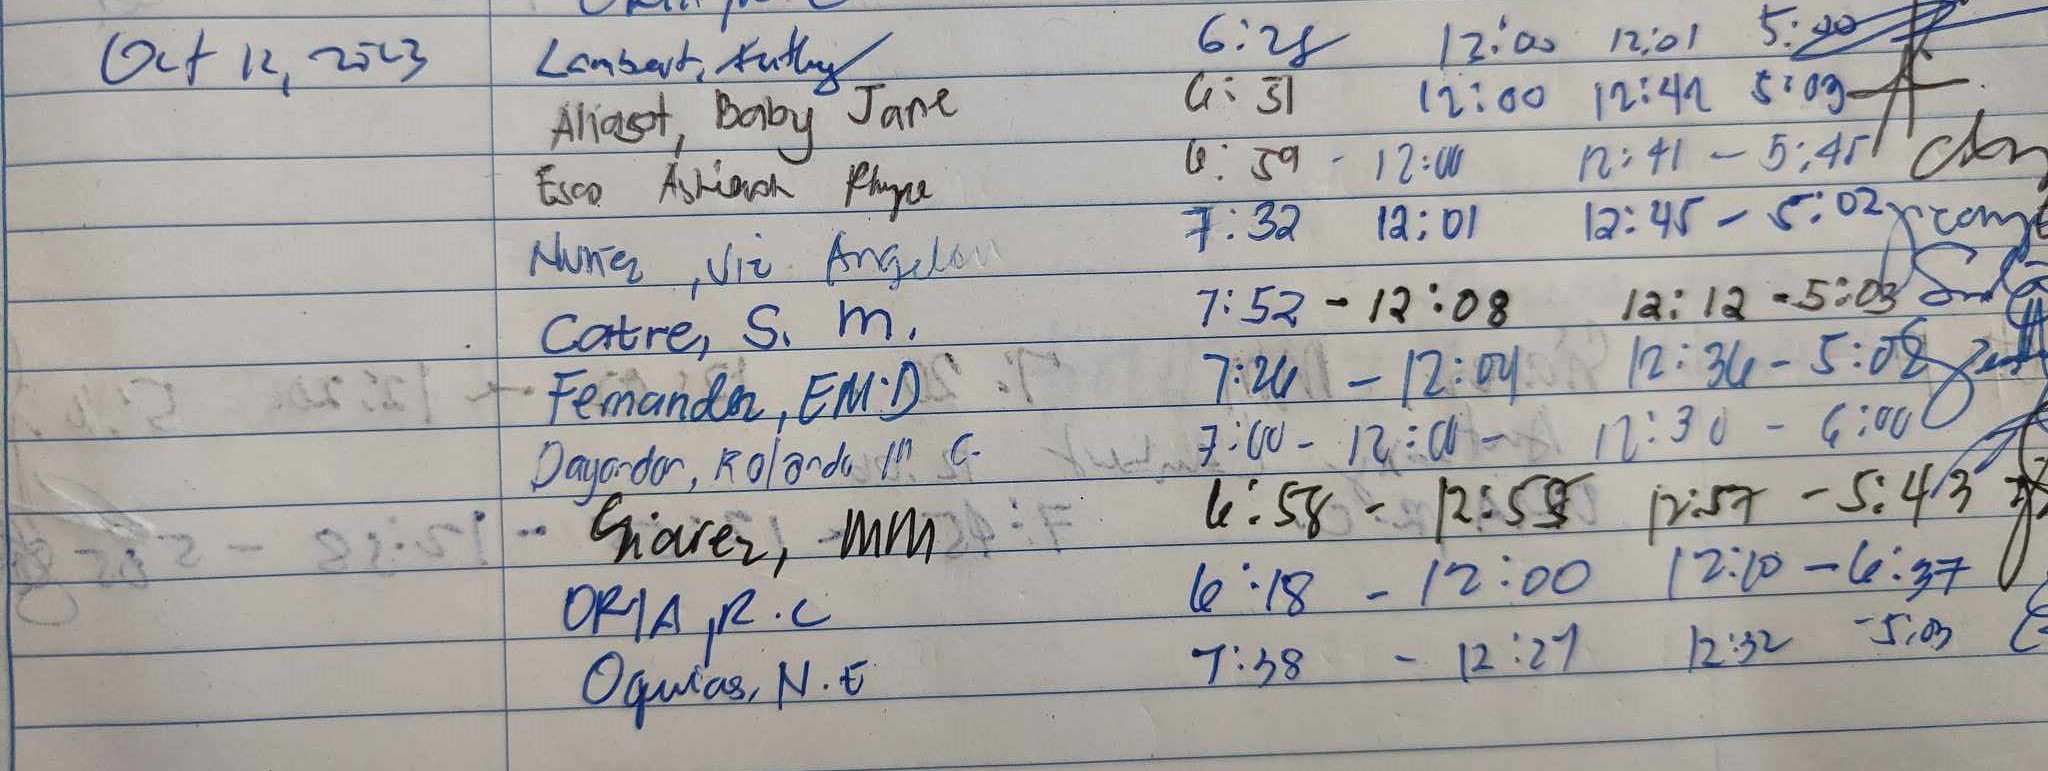 Oct 12, 2023 Lambert, 6:28 12:00 12:01 5:00
Aliasot, Baby Jane 6:31 12:00 12:42 5:03
Esco Rhyze 6:59 - 12:00 12:41 - 5:45
Nuñez, Vic Angelou 7:32 12:01 12:45 - 5:02
Catre, S. M. 7:52 - 12:08 12:12 - 5:03
Fernandez, EM.D 7:26 - 12:04 12:36 - 5:08
Dayandar, Rolando C. 7:00 - 12:00 - 12:30 - 6:00
MM 6:58 - 12:55 12:57 - 5:43
ORIA, R.C 6:18 - 12:00 12:10 - 6:37
Oquias, N.E 7:38 - 12:27 12:32 - 5:03